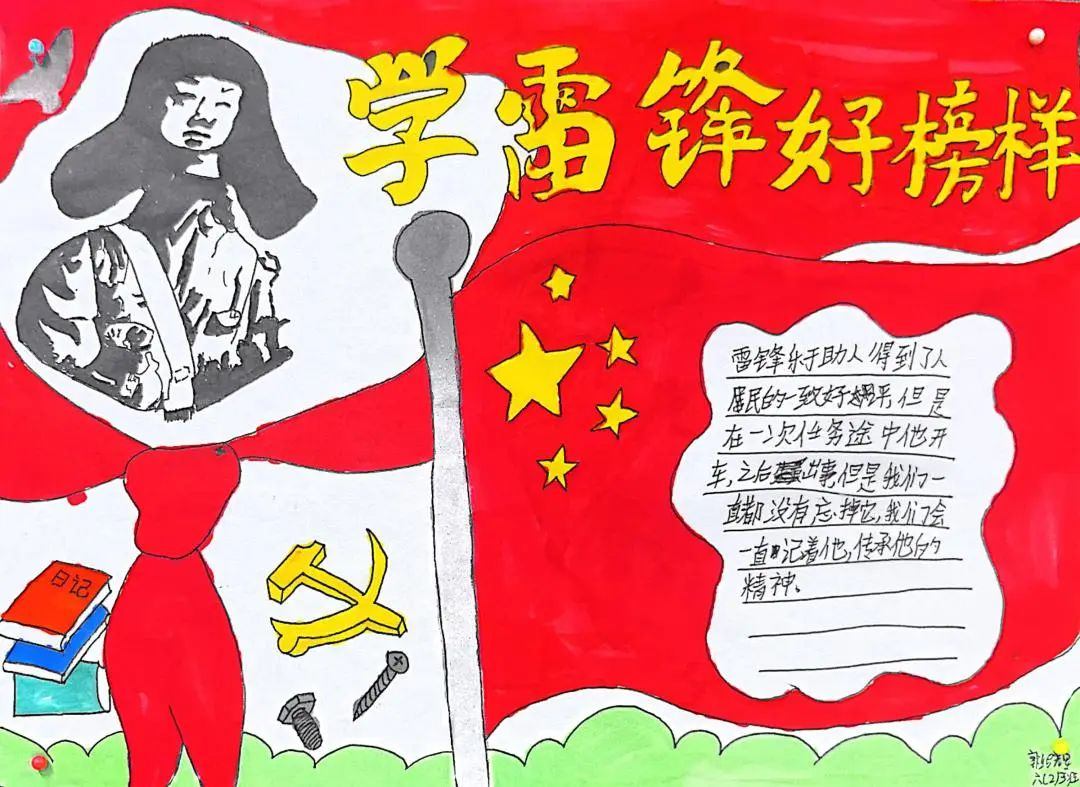 学雷锋好榜样
雷锋乐于助人得到了人
居民的一致好评,但是
在一次任务途中他开
车,之后出事但是我们一
直都没有忘掉它,我们会
一直记着他,传承他的
精神。
日记
六(2)班